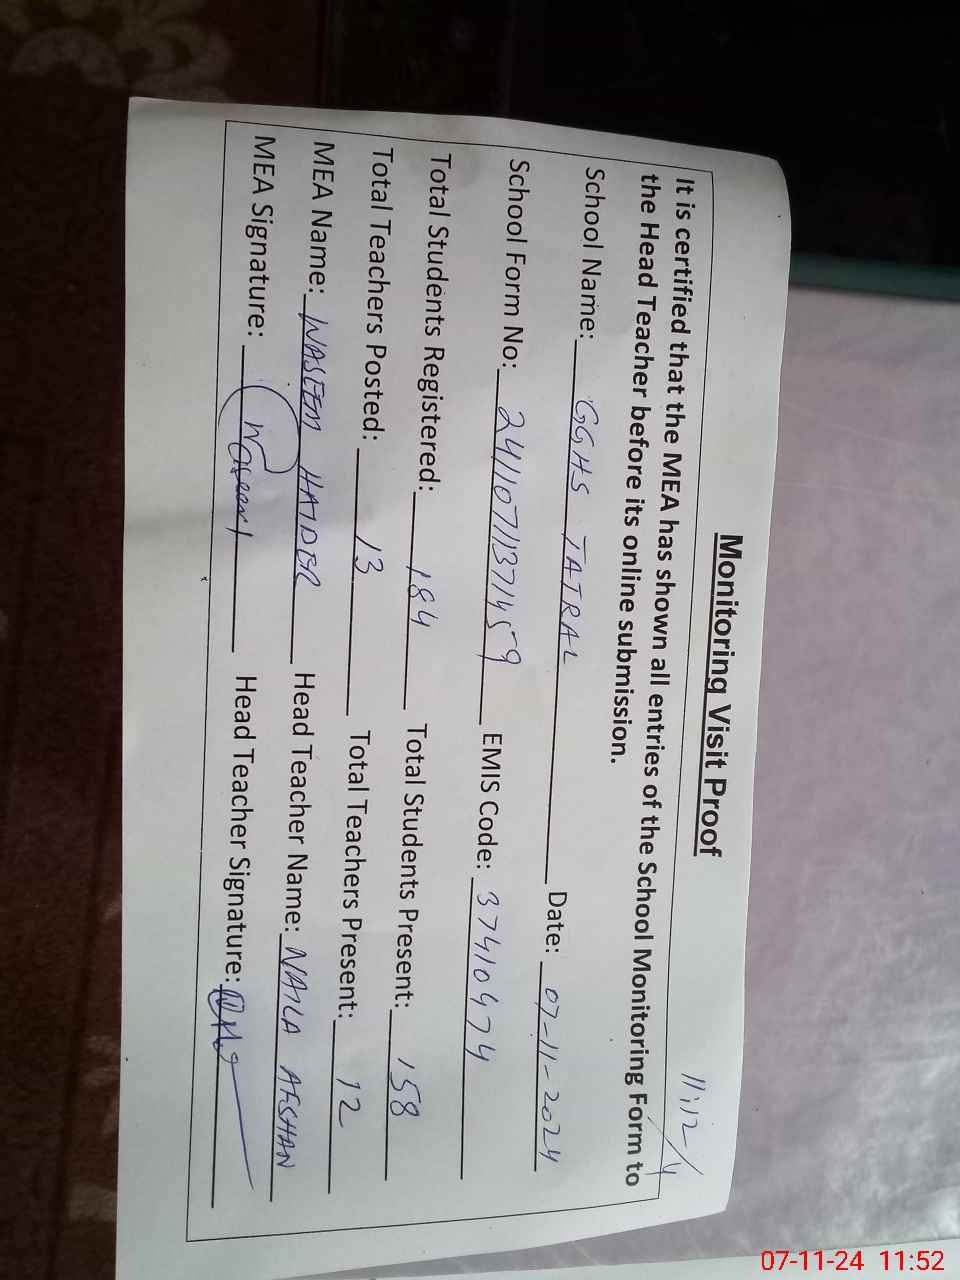 Monitoring Visit Proof
It is certified that the MEA has shown all entries of the School Monitoring Form to
the Head Teacher before its online submission.
School Name: GGHS TATRAL Date: 07-11-2024
School Form No: EMIS Code: 37410474
Total Students Registered: 184 Total Students Present: 158
Total Teachers Posted: 13 Total Teachers Present: 12
MEA Name: WASEEM HAIDER Head Teacher Name: NAILA AFSHAN
MEA Signature: Waseem Head Teacher Signature:
07-11-24 11:52